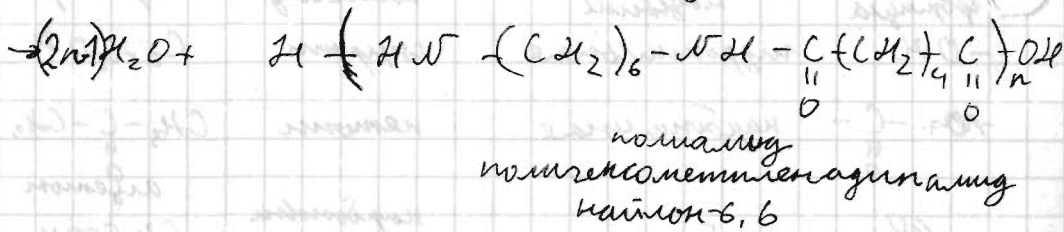 →(2n-1)H₂O + H-(HN-(CH₂)₆-NH-C-(CH₂)₄-C-)ₙOH
O O
полиамид
полигексометиленадипамид
найлон-6,6